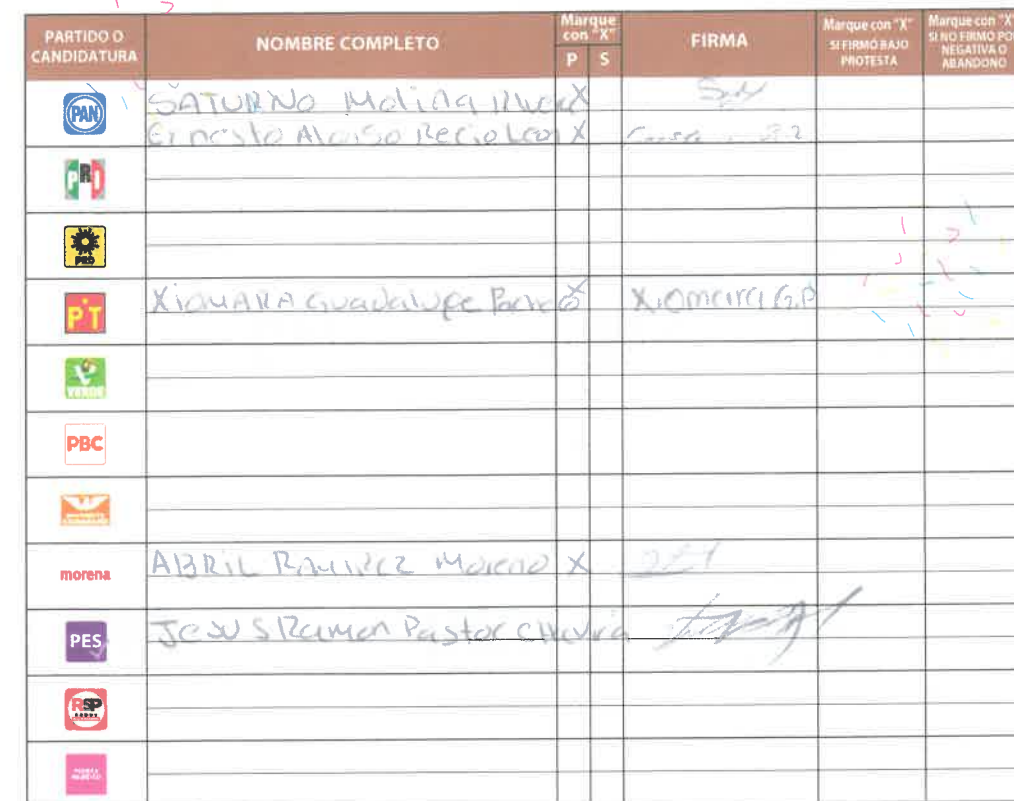 PARTIDO O CANDIDATURA NOMBRE COMPLETO Marque con "X" P S FIRMA Marque con "X" SI FIRMÓ BAJO PROTESTA Marque con "X" SI NO FIRMÓ POR NEGATIVA O ABANDONO
PAN SATURNO Molina X
Ernesto Aloiso Recio Leon X
PRI
PRD
PT XIOMARA Guadalupe X Xiomara G.P
VERDE
PBC
morena ABRIL Ramirez Moreno X
PES JESUS Ramon Pastor Chavira
RSP